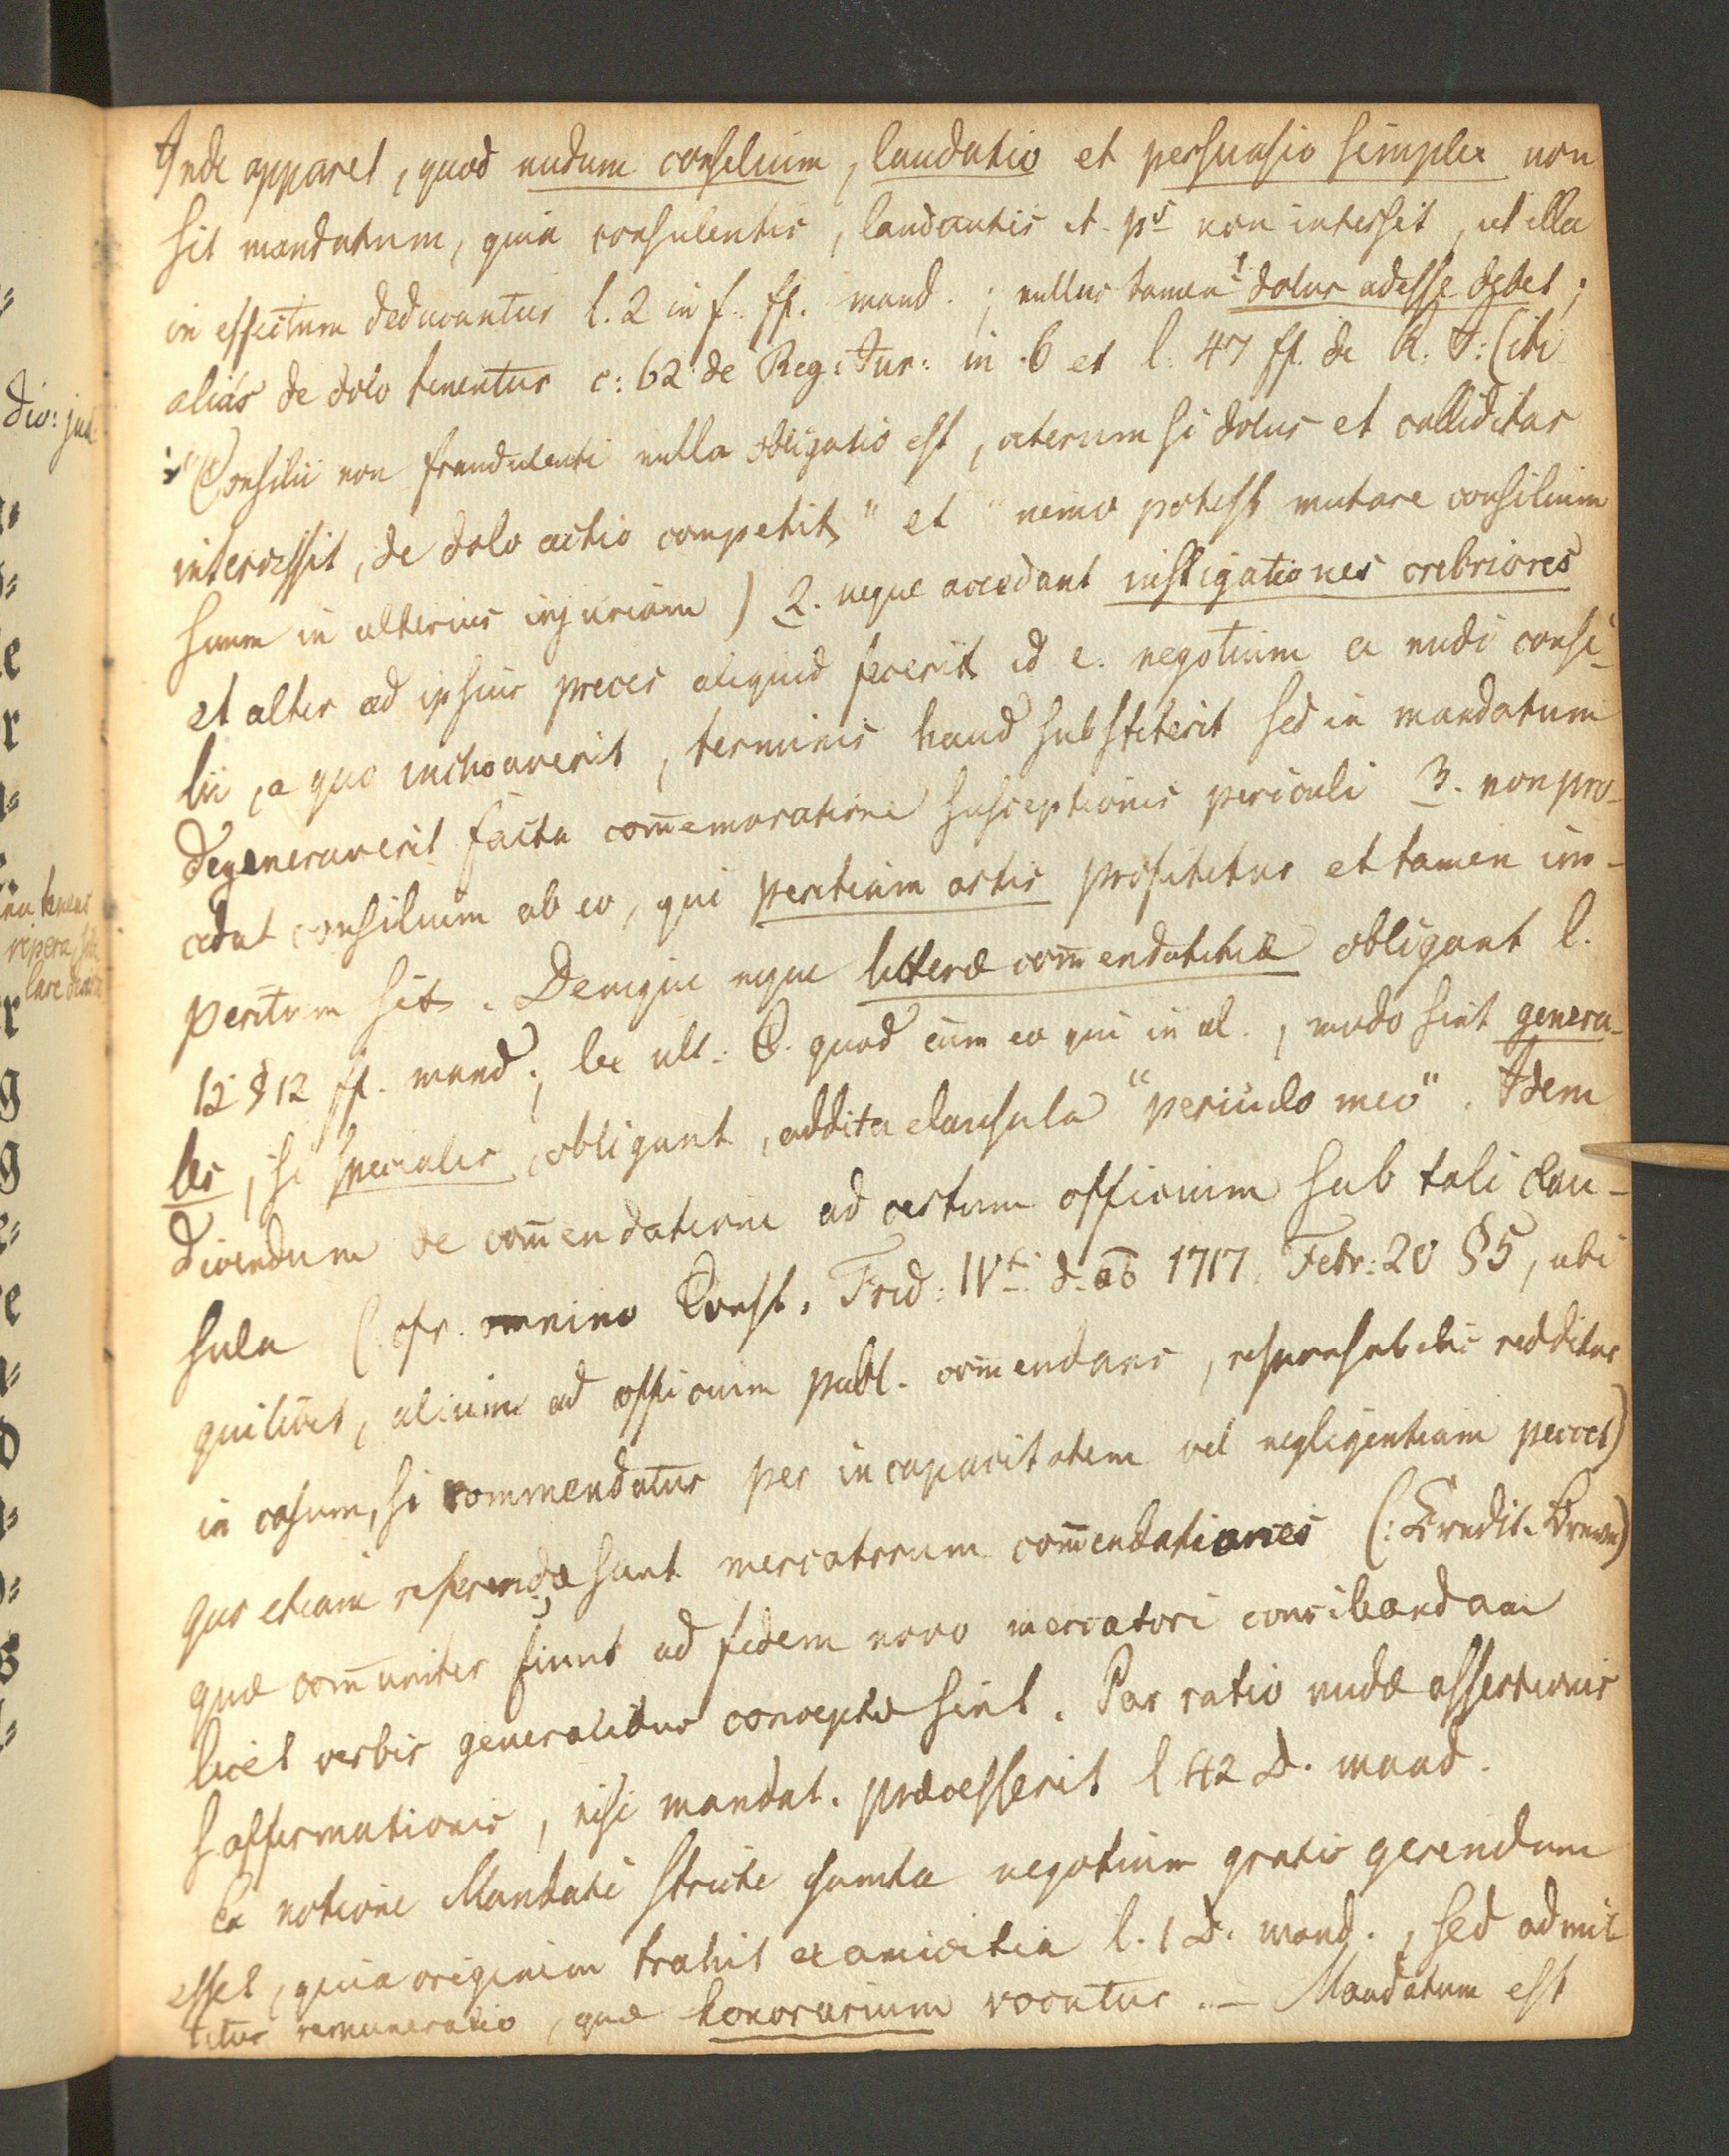 Inde apparet, quod nudum consilium, laudatio et persuasio simplex non
sit mandatum, quia consulentis, laudantis et ps non intersit, ut illa
in effectum deducantur l. 2 in f. ff. mand.; nullus tamen 1. dolus adesse debet;
aliás de dolo tenentur c: 62 de Reg: Jur: in 6 et l. 47 ff. de R. J: (ibi
"Consilii non fraudulenti nulla obligatio est, ceterum si dolus et calliditas
intercessit, de dolo actio competit" et "nemo potest mutare consilium
suum in alterius injuriam) 2. neque accedant instigationes crebriores
et alter ad ipsius preces aliquid fecerit id e. negotium ex nudi consi-
lii, a quo inchoaverit, terminis haud substiterit sed in mandatum
degeneraverit facta com̄emoratione susceptionis periculi 3. non pro-
cedat consilium ab eo, qui peritiam artis profitetur et tamen im-
peritum sit. Denique neque litteræ com̄endatitiæ obligant l.
12 § 12 ff. mand; lex ult. C. quod cum eo qui in al., modo sint genera-
les, si speciales, obligant, addita clausula "periculo meo". Idem
dicendum de com̄endatione ad certum officium sub tali clau-
sula (cfr. omnino Const. Frid: IVti d. ao 1717. Febr: 20 § 5, ubi
quilibet, alium ad officium publ. com̄endans, responsabilis redditur
in casum, si commendatus per incapacitatem vel negligentiam peccet)
Quo etiam referendæ sunt mercatorum com̄endationes (: Credit-Breve)
quæ com̄uniter fiunt ad fidem novo mercatori conciliandam
licet verbis generalibus conceptæ sint. Par ratio nudæ assertionis
s affirmationis, nisi mandat. præcesserit l 42 D. mand.
Ex notione Mandati stricte sumta negotium gratis gerendum
esset, quia originem trahit ex amicitia l. 1 D. mand., sed admit
titur remuneratio, quæ honorarium vocatur. — Mandatum est